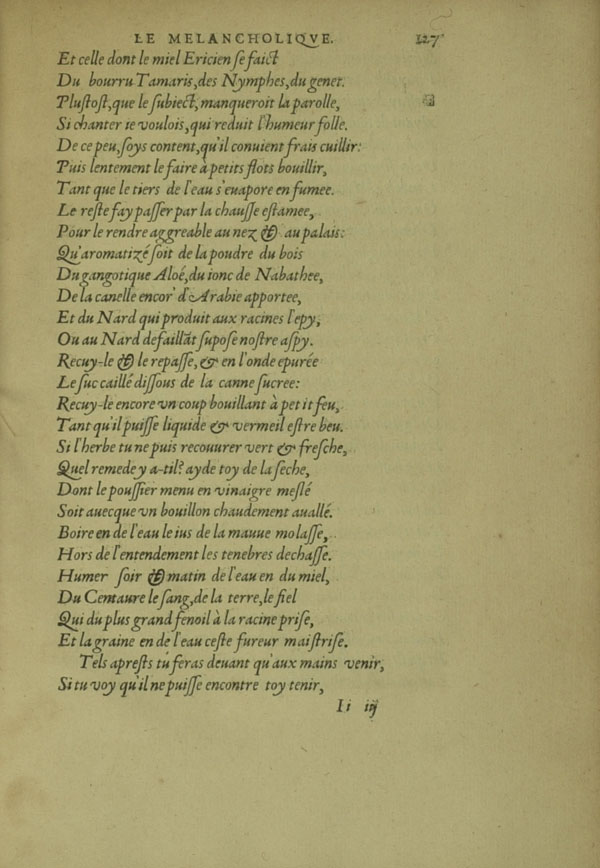 LE MELANCHOLIQVE. 127
Et celle dont le miel Ericien se faict
Du bourru Tamaris, des Nymphes, du genet.
Plustost, que le subiect, manqueroit la parolle,
Si chanter ie voulois, qui reduit l'humeur folle.
De ce peu, soys content, qu'il conuient frais cuillir:
Puis lentement le faire à petits flots bouillir,
Tant que le tiers de l'eau s'euapore en fumee.
Le reste fay passer par la chausse estamee,
Pour le rendre aggreable au nez & au palais:
Qu'aromatizé soit de la poudre du bois
Du gangotique Aloé, du ionc de Nabathee,
De la canelle encor' d'Arabie apportee,
Et du Nard qui produit aux racines l'epy,
Ou au Nard defaillãt supose nostre aspy.
Recuy-le & le repasse, & en l'onde epurée
Le suc caillé dissous de la canne sucree:
Recuy-le encore vn coup bouillant à petit feu,
Tant qu'il puisse liquide & vermeil estre beu.
Si l'herbe tu ne puis recouurer vert & fresche,
Quel remede y a-til? ayde toy de la seche,
Dont le poussier menu en vinaigre meslé
Soit auecque vn bouillon chaudement auallé.
Boire en de l'eau le ius de la mauue molasse,
Hors de l'entendement les tenebres dechasse.
Humer soir & matin de l'eau en du miel,
Du Centaure le sang, de la terre, le fiel
Qui du plus grand fenoil à la racine prise,
Et la graine en de l'eau ceste fureur maistrise.
Tels aprests tu feras deuant qu'aux mains venir,
Si tu voy qu'il ne puisse encontre toy tenir,
Ii iij